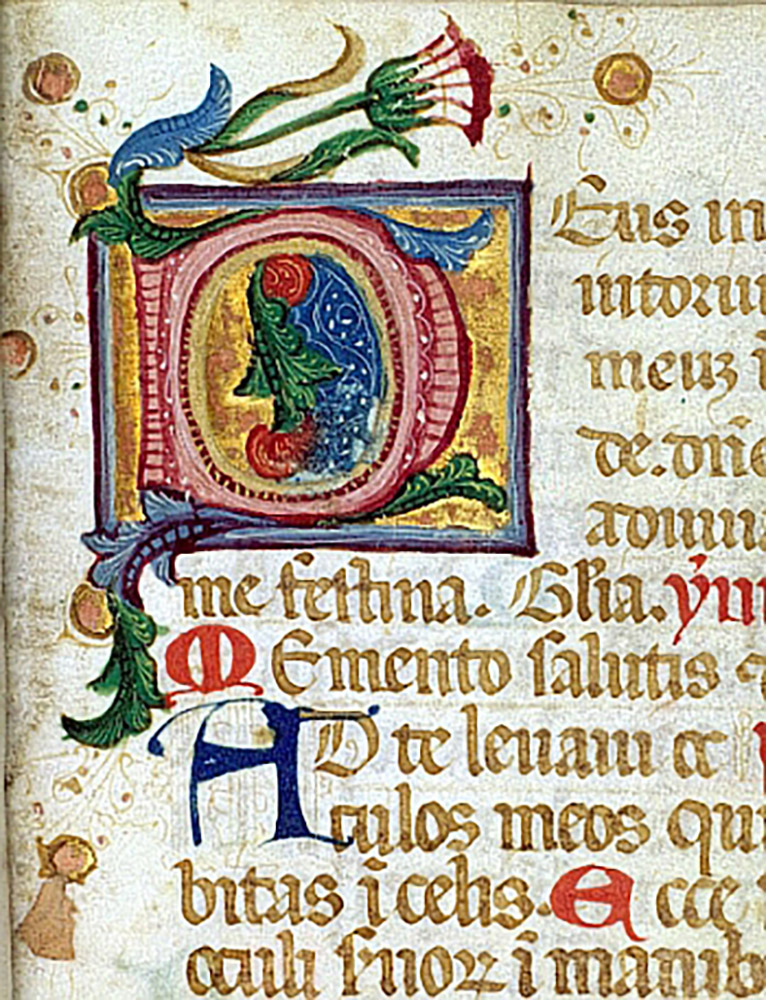 DEus in
intoriu
meuz i
de. dn̄e
adiuua
me festina. Gl̄ia. ẏm
MEmento salutis a
AD te leuaui oc
culos meos qui
bitas ī celis. Ecce
oculi s̄uoꝝ ī manib